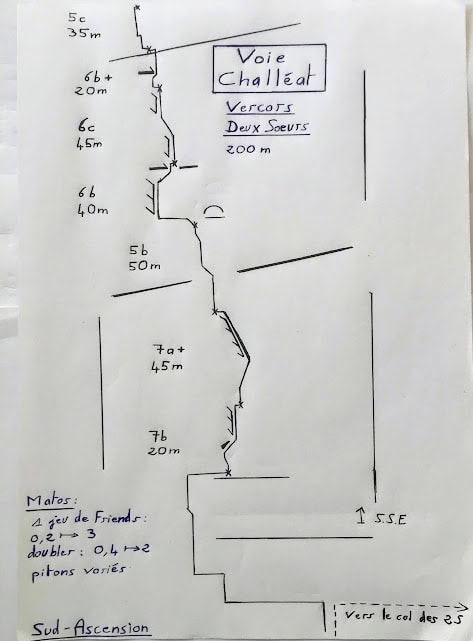 5c
35m
Voie
Challéat
6b+
20m
Vercors
Deux Soeurs
200 m
6c
45m
6b
40m
5b
50m
7a+
45m
7b
20m
Matos:
1 jeu de Friends:
0,2 ↦ 3
doubler: 0,4 ↦ 2
pitons variés
↑ S.S.E
Vers le col des 2S
Sud-Ascension